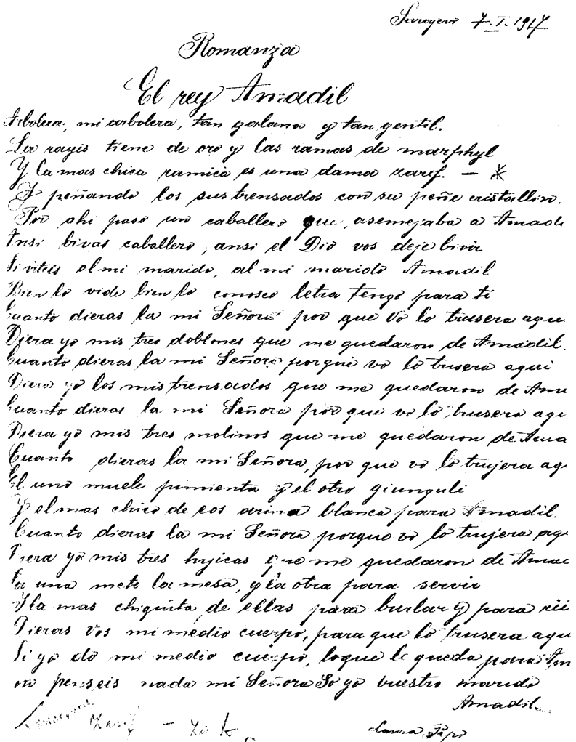 7.I.1917
Romanza
El rey Amadil
Arbolera, mi arbolera, tan galana y tan gentil.
La rayis tiene de oro y las ramas de marphyl
Y la mas chica ramica es una dama zarif. — *
peñando los sus trensados con su peñe cristallin.
Por ahi paso un caballero que, asemejaba a Amadi
Ansi bivas caballero, ansi el Dio vos deje bivir
Si viteis al mi marido, al mi marido Amadil
Bien lo vide bien lo conosco letra tengo para ti
Cuanto dieras la mi Señora por que vo lo trusera aqui
Diera yo mis tres doblones que me quedaron de Amadil.
Cuanto dieras la mi Señora porque vo lo trusera aqui
Diera yo los mis trensados que me quedaron de Ama
Cuanto dieras la mi Señora por que vo lo trusera aqu
Diera yo mis tres molinos que me quedaron de Ama
Cuanto dieras la mi Señora, por que vo lo trujera aq
El uno muele pimienta y el otro giunguli
Y el mas chico de eos arina blanca para Amadil
Cuanto dieras la mi Señora porque vo lo trujera aqu
Diera yo mis tres hijicas que me quedaron de Amad
La una mete la mesa, y la otra para servir
Y la mas chiquita de ellas para burlar y para rii
Dieras vos mi medio cuerpo, para que lo trusera aqu
Si yo do mi medio cuerpo, loque le queda para Am
no penseis nada mi Señora So yo vuestro marido
Amadil.
zarif —
Laura Papo